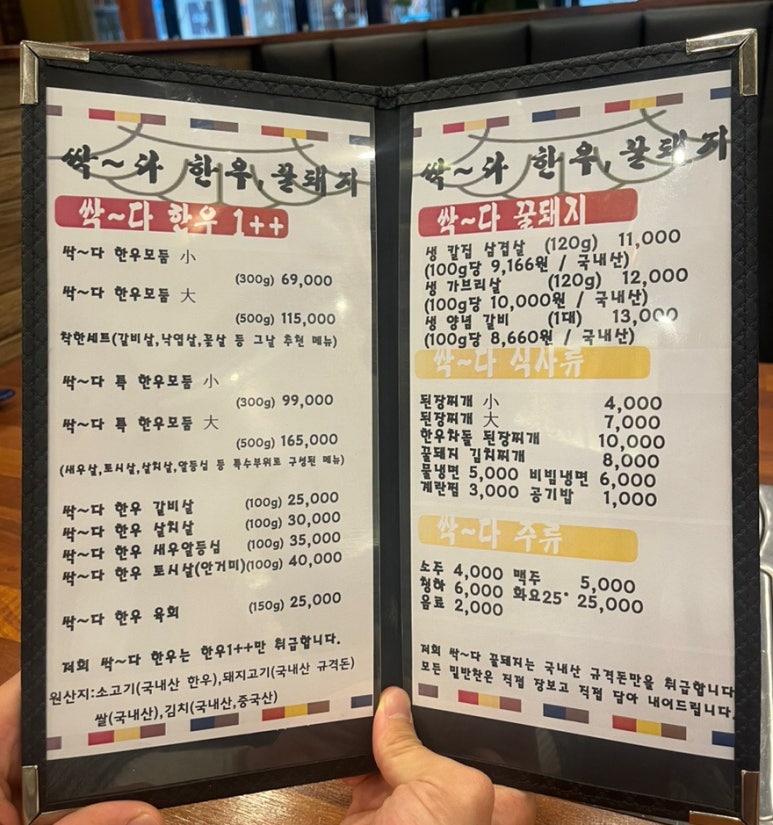 싹~다 한우,꿀돼지
싹~다 한우 1++
싹~다 한우모둠 小
(300g) 69,000
싹~다 한우모둠 大
(500g) 115,000
착한세트(갈비살,낙엽살,꽃살 등 그날 추천 메뉴)
싹~다 특 한우모둠 小
(300g) 99,000
싹~다 특 한우모둠 大
(500g) 165,000
(새우살,토시살,살치살,알등심 등 특수부위로 구성된 메뉴)
싹~다 한우 갈비살 (100g) 25,000
싹~다 한우 살치살 (100g) 30,000
싹~다 한우 새우알등심 (100g) 35,000
싹~다 한우 토시살(안거미)(100g) 40,000
싹~다 한우 육회 (150g) 25,000
저희 싹~다 한우는 한우1++만 취급합니다.
원산지:소고기(국내산 한우),돼지고기(국내산 규격돈)
쌀(국내산),김치(국내산,중국산)
싹~다 한우,꿀돼지
싹~다 꿀돼지
생 칼집 삼겹살 (120g) 11,000
(100g당 9,166원 / 국내산)
생 가브리살 (120g) 12,000
(100g당 10,000원 / 국내산)
생 양념 갈비 (1대) 13,000
(100g당 8,660원 / 국내산)
싹~다 식사류
된장찌개 小 4,000
된장찌개 大 7,000
한우차돌 된장찌개 10,000
꿀돼지 김치찌개 8,000
물냉면 5,000 비빔냉면 6,000
계란찜 3,000 공기밥 1,000
싹~다 주류
소주 4,000 맥주 5,000
청하 6,000 화요25° 25,000
음료 2,000
저희 싹~다 꿀돼지는 국내산 규격돈만을 취급합니다
모든 밑반찬은 직접 장보고 직접 담아 내어드립니다.